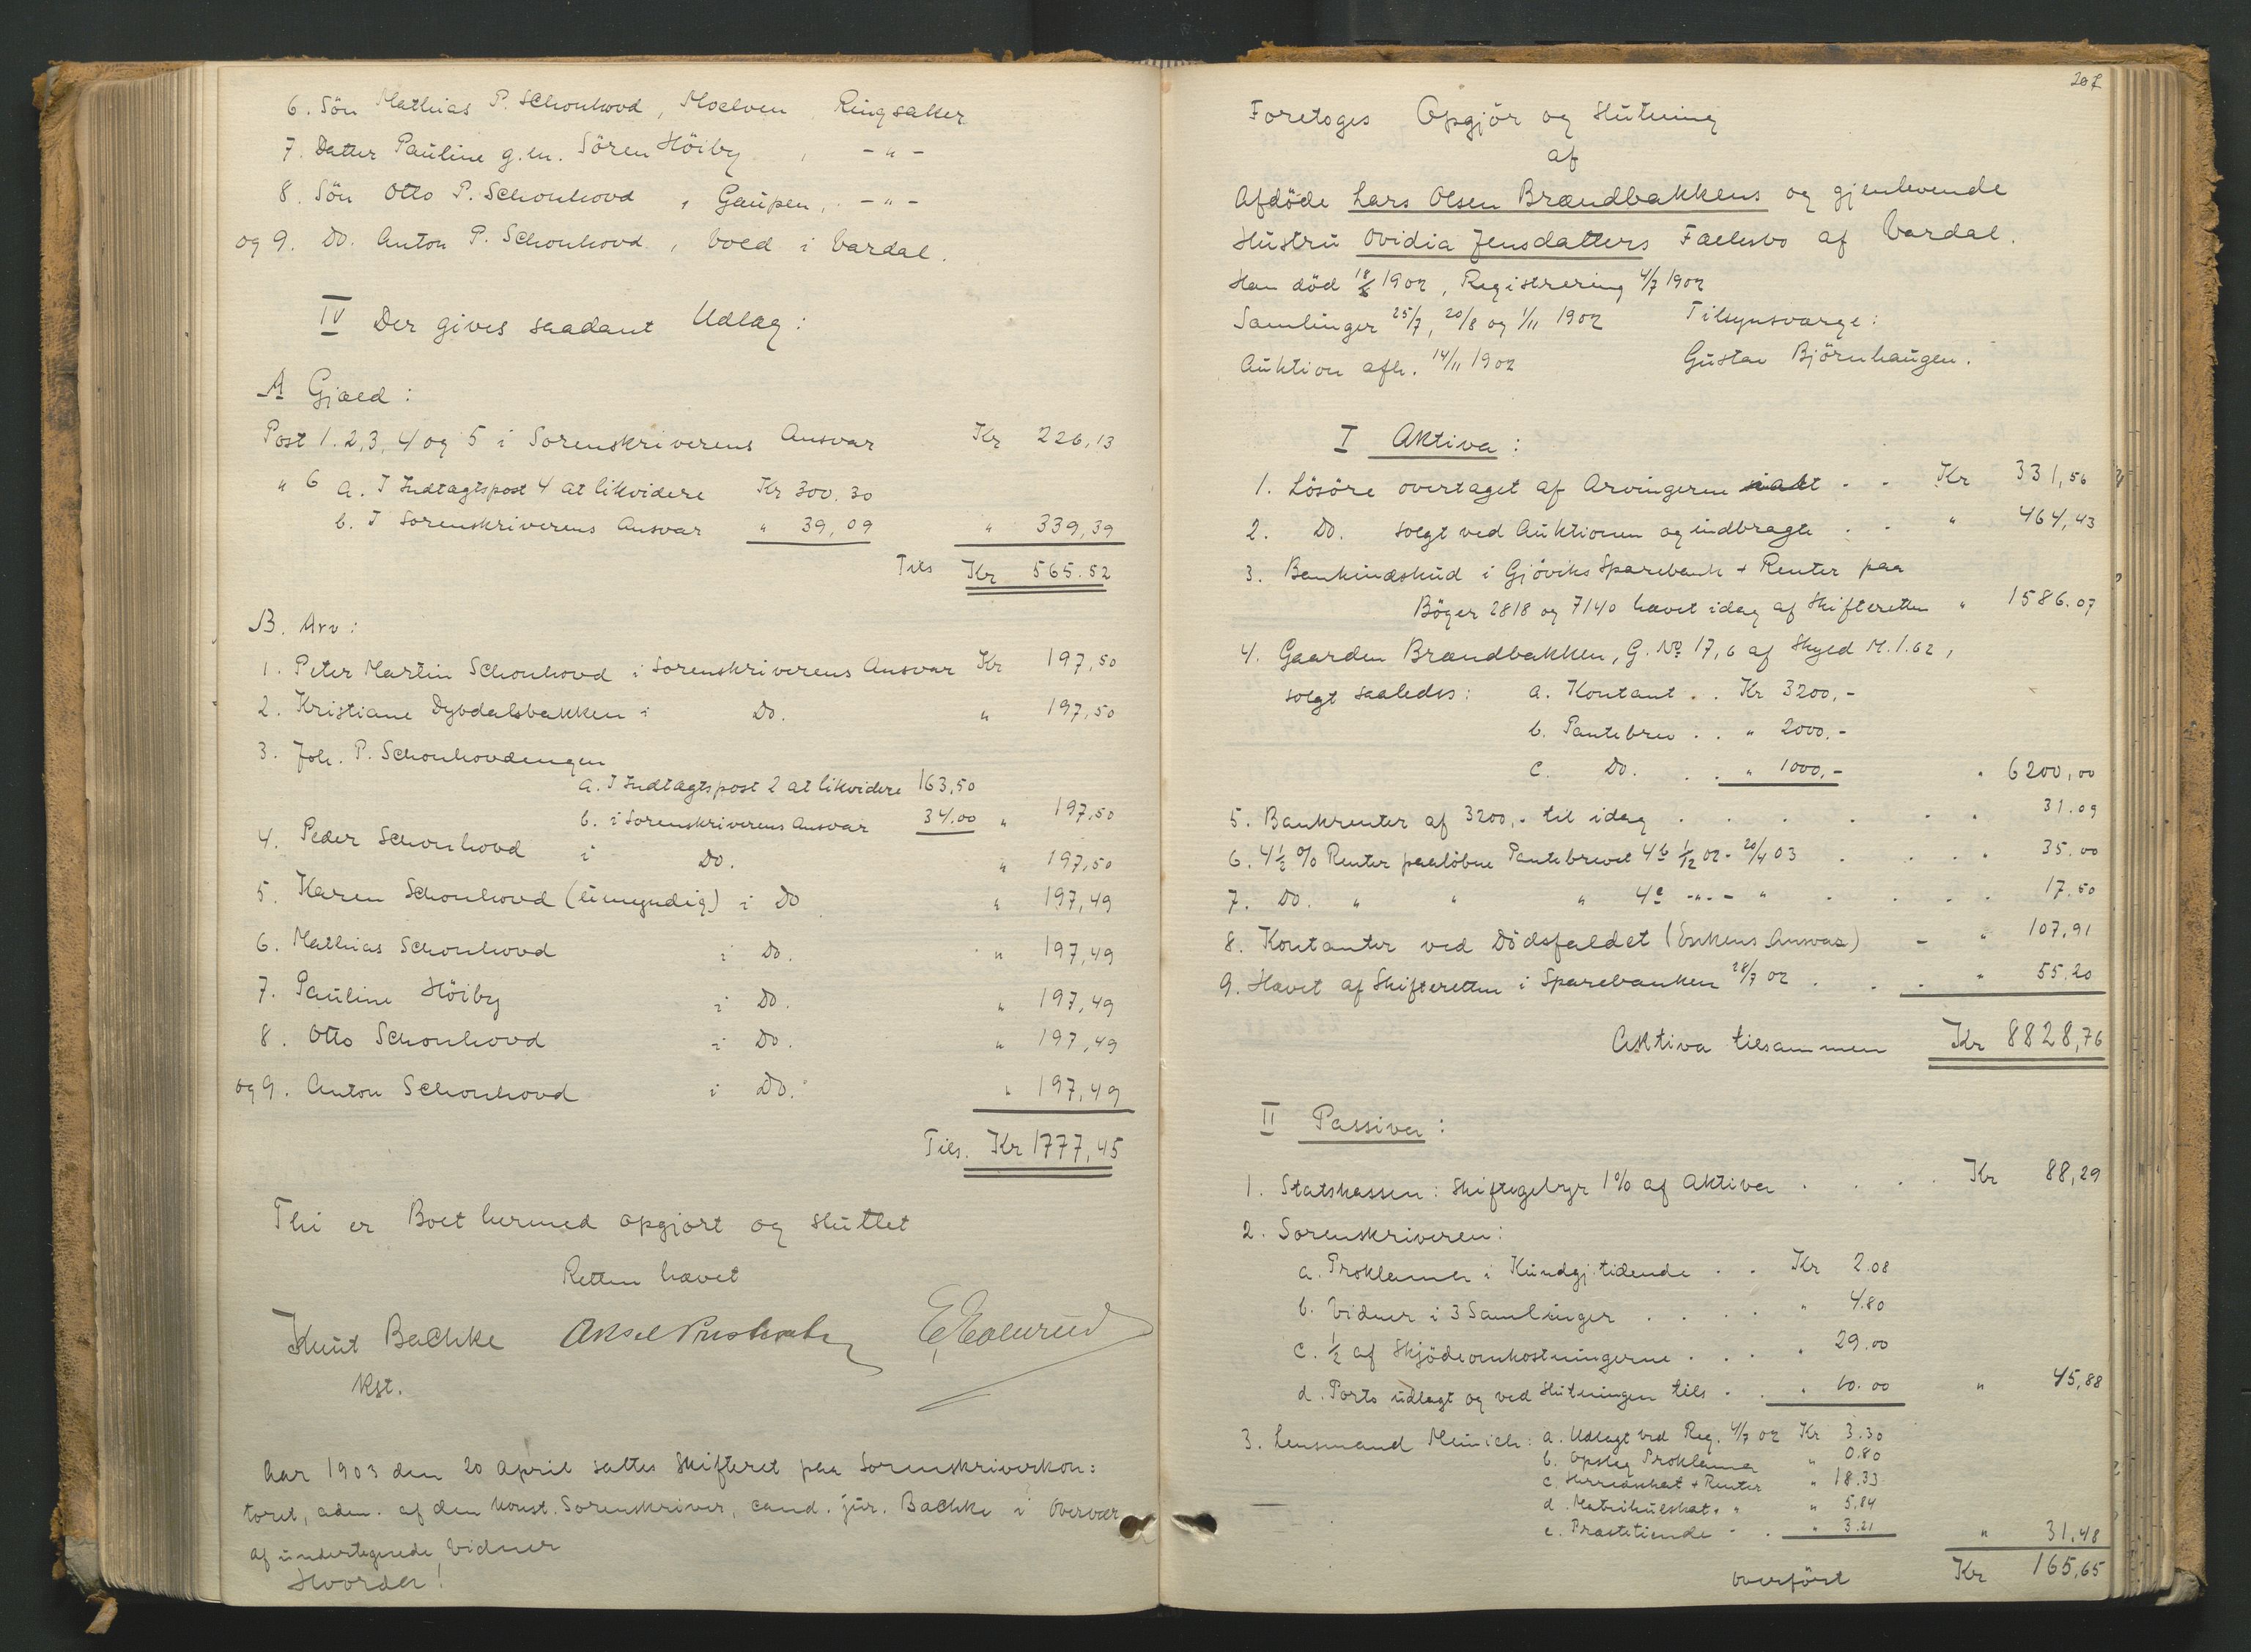 6. Sön Mathias P. Schonhovd, Moelven, Ringsaker
7. Datter Pauline g.m. Sören Höiby, - " -
8. Sön Otto P. Schonhovd, Gaupen, - " -
og 9. Do. Anton P. Schonhovd, bold i Vardal.
IV Der gives saadant Udlæg:
A Gjæld:
Post 1.2,3,4 og 5 i Sorenskriverens Ansvar Kr 226,13
" 6 a. I Indtægtspost 4 at likvidere Kr 300.30
b. I Sorenskriverens Ansvar " 39,09 " 339,39
Tils Kr 565.52
B. Arv:
1. Peter Martin Schonhovd i Sorenskriverens Ansvar Kr 197,50
2. Kristiane Dybdalsbakken i Do. " 197,50
3. Joh. P. Schonhovdengen
a. I Indtægtspost 2 at likvidere 163,50
b. i Sorenskriverens Ansvar 34.00 " 197,50
4. Peder Schonhovd i Do. " 197,50
5. Karen Schonhovd (umyndig) i Do " 197,49
6. Mathias Schonhovd i Do. " 197,49
7. Pauline Höiby i Do. " 197,49
8. Otto Schonhovd i Do. " 197,49
og 9. Anton Schonhovd i Do. " 197,49
Tils. Kr 1777,45
Thi er Boet hermed opgjort og sluttet
Retten hævet
Knut Bachke
kst.
Aar 1903 den 20 April sattes Skifteret paa Sorenskriverkon:
toret, adm. af den konst. Sorenskriver, cand. jur. Bachke i Overvær
af undertegnede Vidner
Hvorda!
207
Foretoges Opgjör og Slutning
af
Afdöde Lars Olsen Brændbakkens og gjenlevende
Hustru Ovidia Jensdatters Fællesbo af Vardal.
Han död 18/6 1902, Registrering 4/7 1902
Samlinger 25/7, 20/8 og 1/11 1902 Tilsynsværge:
Auktion afh. 14/11 1902 Gustav Björnhaugen.
I Aktiva:
1. Lösöre overtaget af Arvingerne . . Kr 331,56
2. Do. solgt ved Auktionen og indbragte . . " 464,43
3. Bankindskud i Gjöviks Sparebank + Renter paa
Böger 2818 og 7140 hævet idag af Skifteretten " 1586.07
4. Gaarden Brændbakken, G. No 17,6 af Skyld M. 1.62,
solgt saaledes: a. Kontant . . Kr 3200,-
b. Pantebrev . . " 2000.-
c. Do. . . " 1000,- " 6200,00
5. Bankrenter af 3200,- til idag . . . . . . 31.09
6. 4½ % Renter paalöbne Pantebrevet 4b 1/12 02 - 20/4 03 . . . . 35.00
7. Do. " " " 4c - " - " . . . . 17.50
8. Kontanter ved Dödsfaldet (Enkens Ansvar) - " 107,91
9. Hævet af Skifteretten i Sparebanken 28/7 02 . . . " 55.20
Aktiva tilsammen Kr 8828,76
II Passiva:
1. Statskassen: Skiftegebyr 1% af Aktiva . . . . Kr 88,29
2. Sorenskriveren:
a. Proklama i Kundgj. tidende . . Kr 2.08
b. Vidner i 3 Samlinger . . . . " 4.80
c. ½ af Skjödeomkostningerne . . . " 29.00
d. Porto udlagt og ved Slutningen tils . . " 10.00 " 45,88
3. Lensmand Meinich: a. Udlagt ved Reg. 4/7 02 Kr 3.30
b. Opslag Proklama " 0.80
c. Herredskat + Renter " 18.33
d. Matrikulskat + " " 5.84
e. Præstetiende - . " 3.21 " 31,48
overfört Kr 165,65